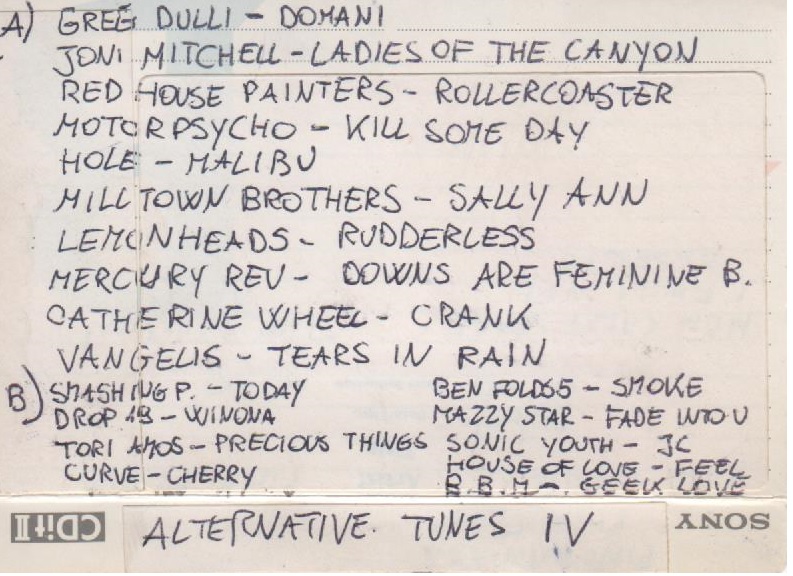 A) GREG DULLI - DOMANI
JONI MITCHELL - LADIES OF THE CANYON
RED HOUSE PAINTERS - ROLLERCOASTER
MOTORPSYCHO - KILL SOME DAY
HOLE - MALIBU
MILLTOWN BROTHERS - SALLY ANN
LEMONHEADS - RUDDERLESS
MERCURY REV - DOWNS ARE FEMININE B.
CATHERINE WHEEL - CRANK
VANGELIS - TEARS IN RAIN
B) SMASHING P. - TODAY
DROP 19 - WINONA
TORI AMOS - PRECIOUS THINGS
CURVE - CHERRY
BEN FOLDS 5 - SMOKE
MAZZY STAR - FADE INTO U
SONIC YOUTH - JC
HOUSE OF LOVE - FEEL
B.B.M - GEEK LOVE
CDit II
ALTERNATIVE TUNES IV
SONY